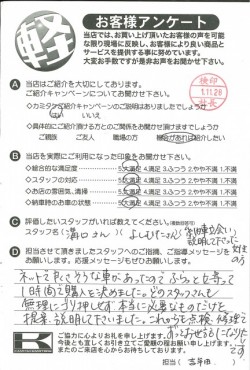 軽
お客様アンケート
当店では、お買い上げ頂いたお客様の声を可能
な限り現場に反映し、お客様により良い商品と
サービスを提供する事に努めています。
大変お手数ですが是非お声をお聞かせ下さい。
検印
1.11.28
店長
A 当店はご紹介を大切にしております。
ご紹介キャンペーンについてお聞かせ下さい。
◇カミタケ紹介キャンペーンのご説明はありましたでしょうか
はい いいえ
◇具体的にご紹介頂ける方とのご関係をお聞かせ頂けますでしょうか
ご親族 ご友人 お子様 その他
B 当店を実際にご利用になった印象をお聞かせ下さい。
◇総合的な満足度 5大満足 4.満足 3.ふつう 2.やや不満 1.不満
◇スタッフの対応 5大満足 4.満足 3.ふつう 2.やや不満 1.不満
◇お店の雰囲気、清掃 5大満足 4.満足 3.ふつう 2.やや不満 1.不満
◇納車時のお車の状態 5大満足 4.満足 3.ふつう 2.やや不満 1.不満
C 評価したいスタッフがいれば教えてください。(複数回答可)
スタッフ名( 溝口さん よしむたさん
説明して下さった
女性
の方
D 担当させて頂きましたスタッフへのご指摘、ご指導
メッセージなど、応援メッセージもぜひお願いします。
ネットで気にそうな車があったので ふらっと立寄って
1時間で購入を決めました。どのスタッフさんも
無理にゴリ押しせず、本当に必要なものだけを
提案、説明して下さいました。これからも点検・修理で
お世話になりたい
です
K
ご協力に心よりお礼を申し上げます。
今後とも宜しくお引き立ての程お願いします。
またのご来店を心からお待ちしております。
担当( 吉牟田 )